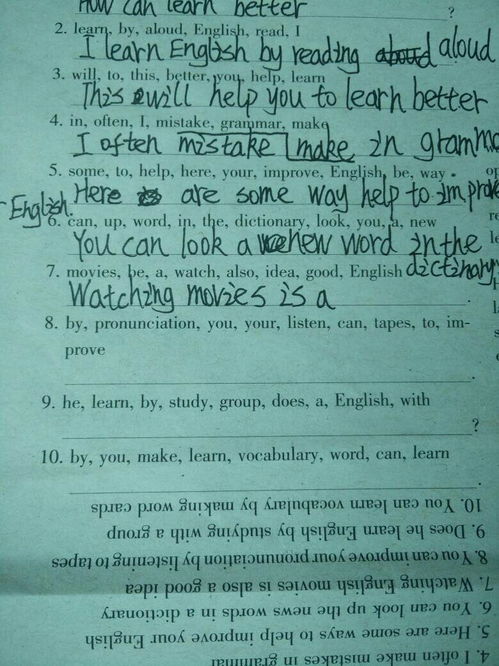 How can learn better ?
2. learn, by, aloud, English, read, I
I learn English by reading aloud
3. will, to, this, better, you, help, learn
This will help you to learn better
4. in, often, I, mistake, grammar, make
I often mistake make in gramma
5. some, to, help, here, your, improve, English, be, way
Here are some way help to improve
English.
6. can, up, word, in, the, dictionary, look, you, a, new
You can look a new word in the
dictinary
7. movies, be, a, watch, also, idea, good, English
Watching movies is a .
8. by, pronunciation, you, your, listen, can, tapes, to, im-
prove
9. he, learn, by, study, group, does, a, English, with
?
10. by, you, make, learn, vocabulary, word, can, learn
10. You can learn vocabulary by making word cards
9. Does he learn English by studying with a group
8. You can improve your pronunciation by listening to tapes
7. Watching English movies is also a good idea
6. You can look up the news words in a dictionary
5. Here are some ways to help improve your English
4. I often make mistakes in grammar